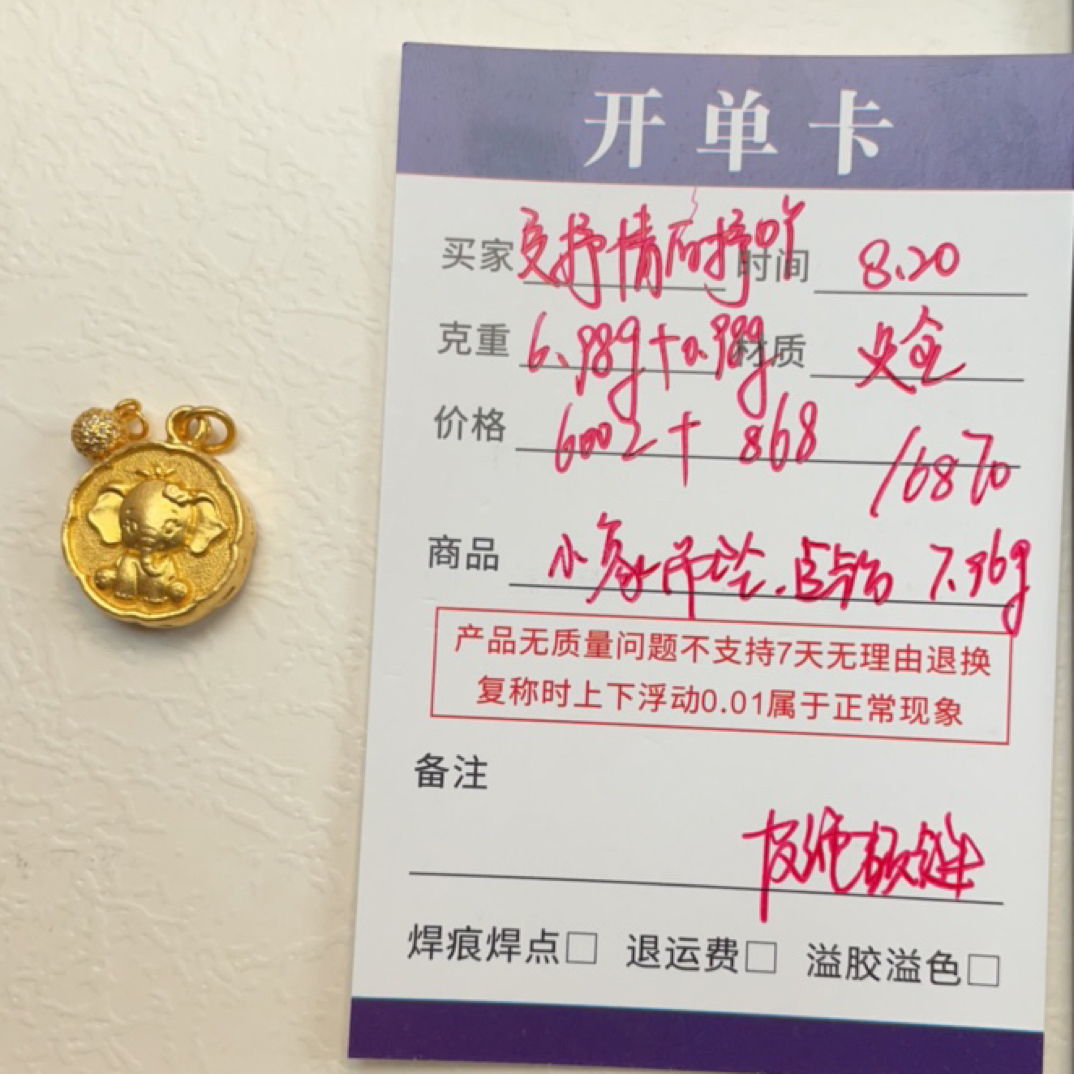 开单卡
买家 时间 8.20
克重 6.98g+0.98g 材质 足金
价格 6002+868 /6870
商品 小象 7.96g
产品无质量问题不支持7天无理由退换
复称时上下浮动0.01属于正常现象
备注
焊痕焊点□ 退运费□ 溢胶溢色□